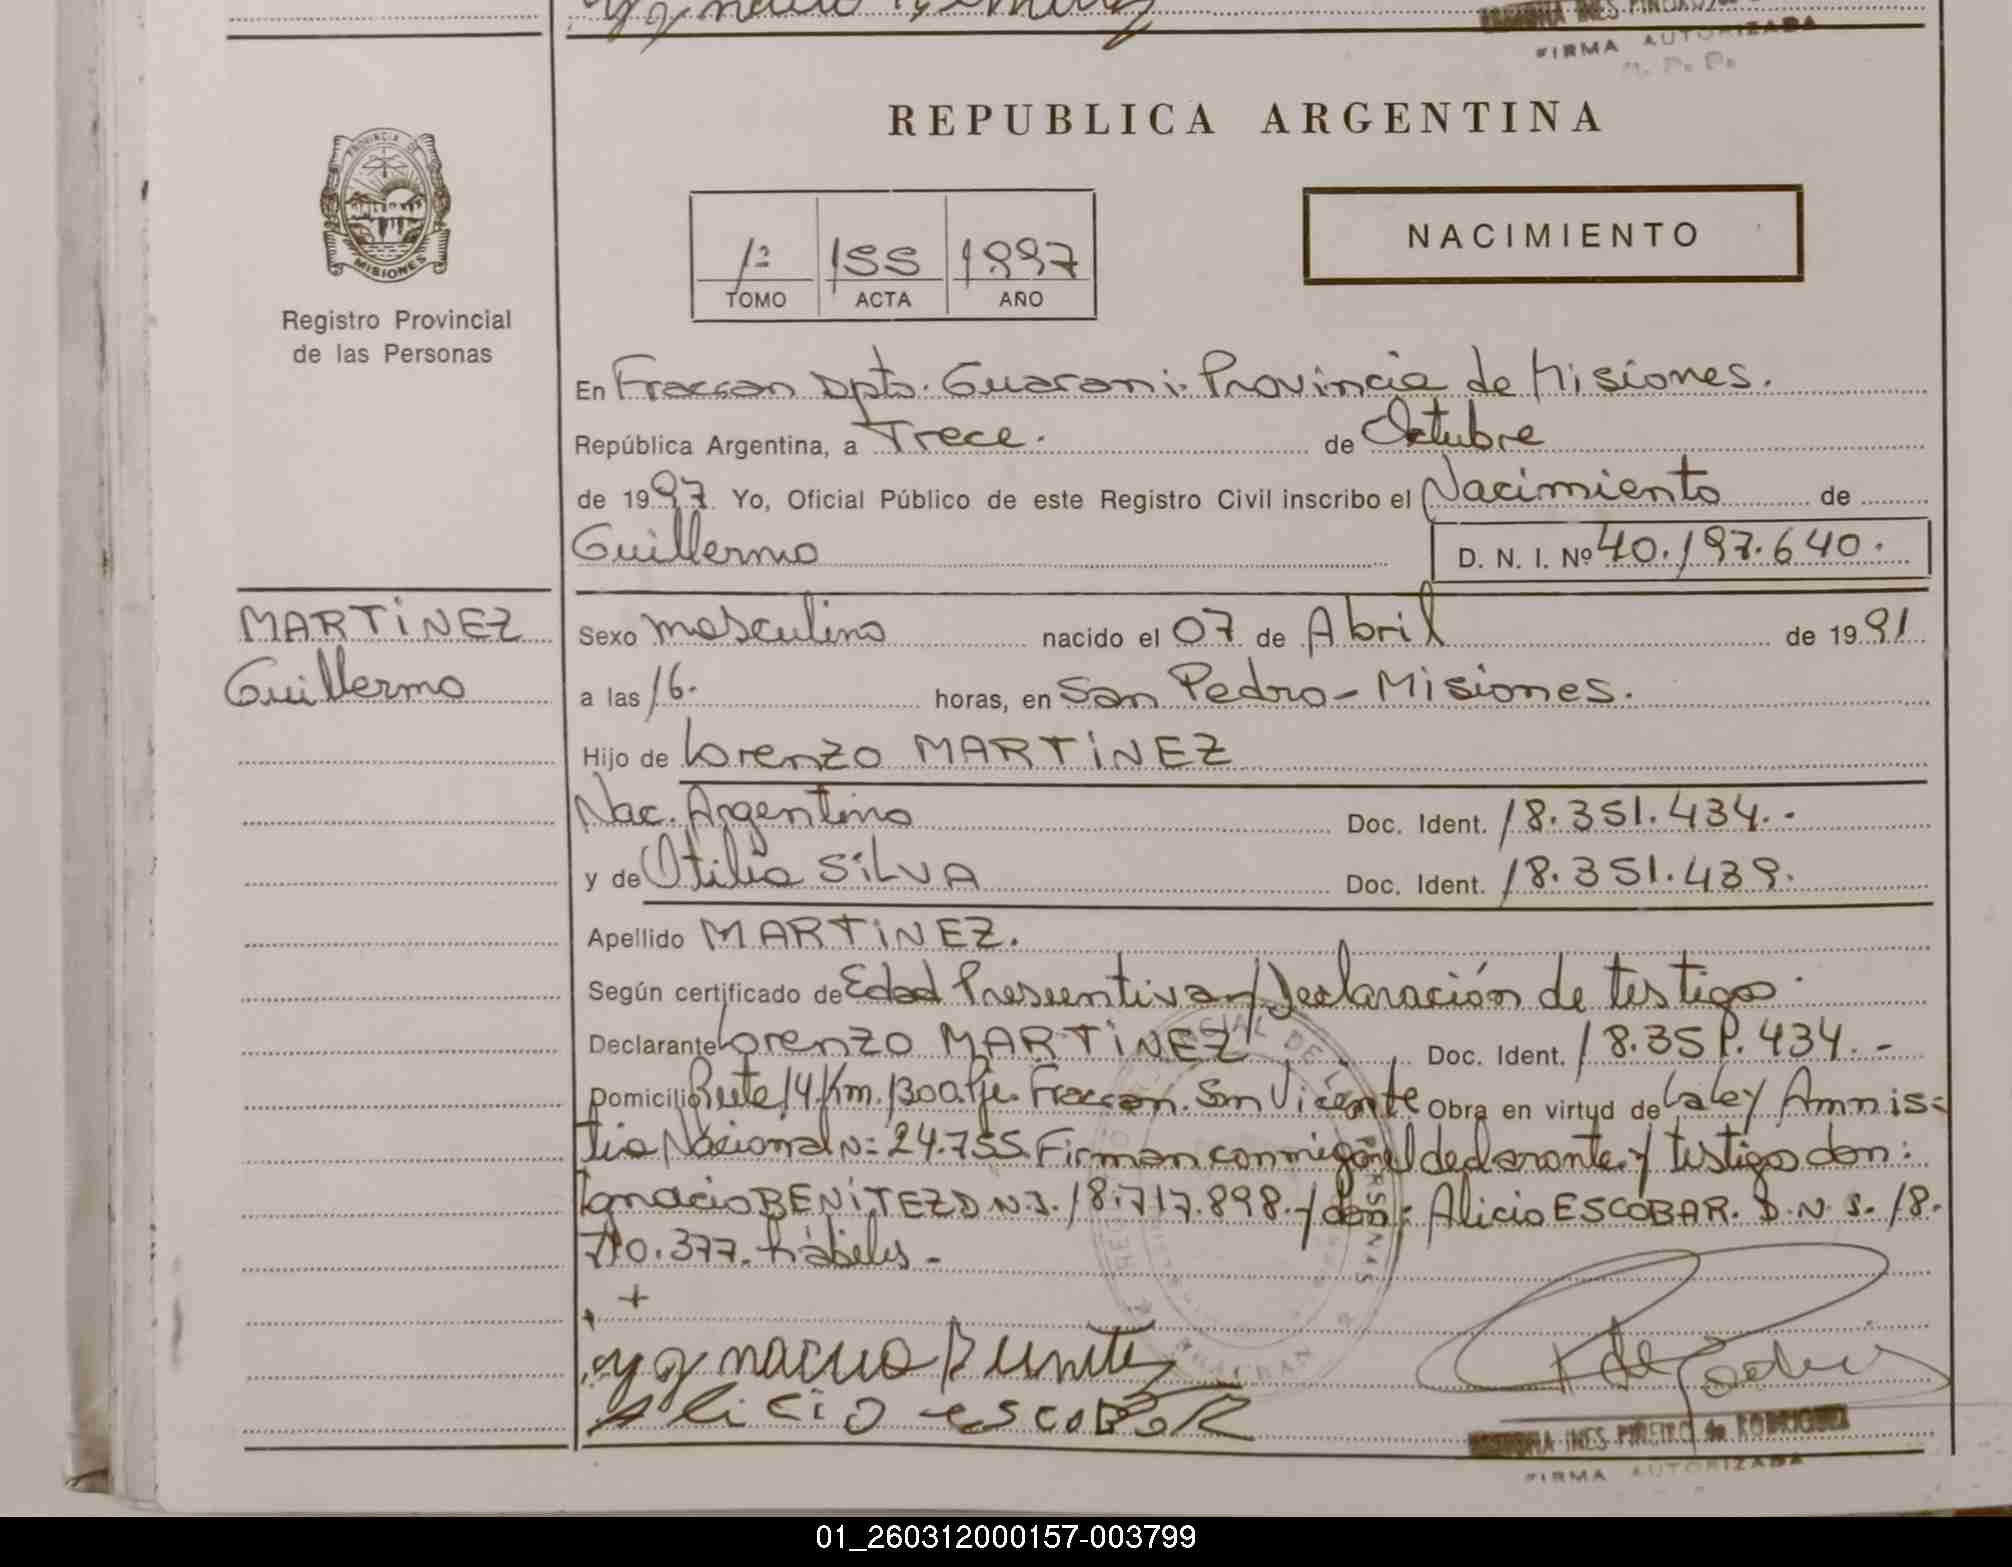 FIRMA AUTORIZADA
REPUBLICA ARGENTINA
PROVINCIA DE
MISIONES
Registro Provincial
de las Personas
1º 155 1997
TOMO ACTA AÑO
NACIMIENTO
En Fracran Dpto. Guarani. Provincia de Misiones.
República Argentina, a Trece. de Octubre
de 1997 Yo, Oficial Público de este Registro Civil inscribo el Nacimiento de
Guillermo D. N. I. Nº 40.197.640.
MARTINEZ
Guillermo
Sexo masculino nacido el 07 de Abril de 1991
a las 16. horas, en San Pedro - Misiones.
Hijo de Lorenzo MARTINEZ
Nac. Argentino Doc. Ident. 18.351.434.-
y de Otilia SILVA Doc. Ident. 18.351.439.
Apellido MARTINEZ.
Según certificado de Edad Presuntiva y Declaración de testigo.
Declarante Lorenzo MARTINEZ Doc. Ident. 18.351.434.-
Domicilio Ruta 14 Km. Fracran. San Vicente Obra en virtud de la Ley Amnis-
tia Nacional Nº 24.755. Firman conmigo el declarante y testigos don:
Ignacio BENITEZ D.N.I. 18.717.898. y don: Alicio ESCOBAR. D.N.I. 18.
710.377. hábiles.-
+
Ygnacio Benitez
Alicio escobar
INES PIÑEIRO de RODRIGUEZ
FIRMA AUTORIZADA
FRACRAN
01_260312000157-003799